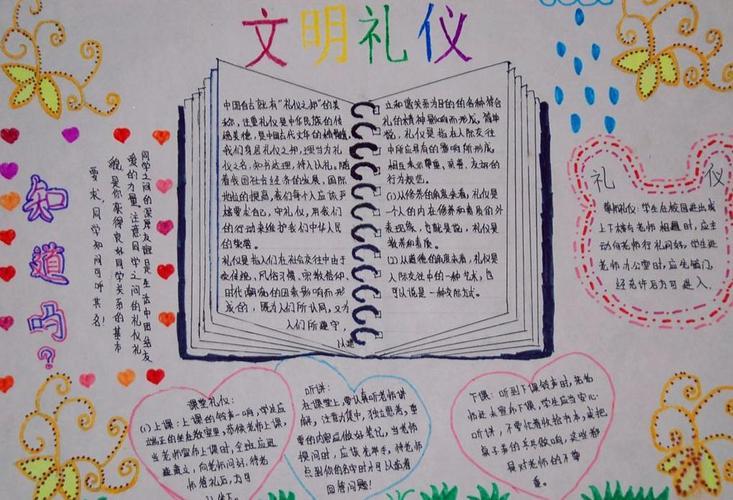 文明礼仪
中国自古就有“礼仪之邦”的美
称，注重礼仪是中华民族的传
统美德，是中国古代文明的精髓
我们身居礼仪之邦，理当为礼
仪之名，知书达理，待人以礼。随
着我国社会经济的发展，国际
地位的提高，我们每个人应该严
格要求自己，守礼仪，用我们
的行动来维护我们中华人民
的荣誉。
礼仪是指人们在社会交往中由于
受传统，风俗习惯，宗教信仰，
时代潮流的因素影响而形
成的，既为人们所认同，又为
人们所遵守，
以建
立和谐关系为目的的各种符合
礼的精神影响而形成。简单
说，礼仪是指在人际交往
中所应具有的
相互表示尊重，
的行为规范。
(1)从修养的角度来看，礼仪是
一个人的内在修养和素质的外
表现象，也就是说，礼仪是
教养和素质。
(2)从道德的角度来看，礼仪是
人际交往中的一种艺术，也
可以说是一种交际方式。
知道吗？
同学之间的深厚友谊是生活中团结友
爱的力量，注意同学之间的礼仪礼
貌，是你获得良好同学关系的基本
要求，同学知间可听其名！
礼仪
尊师礼仪：学生在校园进出或
上下楼与老师相遇时，应主
动向老师行礼问好。学生进
老师办公室时，应先敲门，
经允许后方可进入。
课堂礼仪：
(1)上课：上课的铃声一响，学生应
端正的坐在教室里，恭候老师上课，
当老师宣布上课时，全班应迅
速直立，向老师问好，待老
师答礼后，方可
以坐下。
听讲：
在课堂上，要认真听老师讲
解，注意力集中，独立思考，重
要的内容应做好笔记，当老师
提问时，应该先举手，待老师
点到你的名字时才可以站着
回答问题！
下课：听到下课铃声时，若老
师还未宣布下课，学生应当安心
听讲，不要忙着收拾书本，或把
桌子弄的乒乓作响，这些都
是对老师的不尊
重。